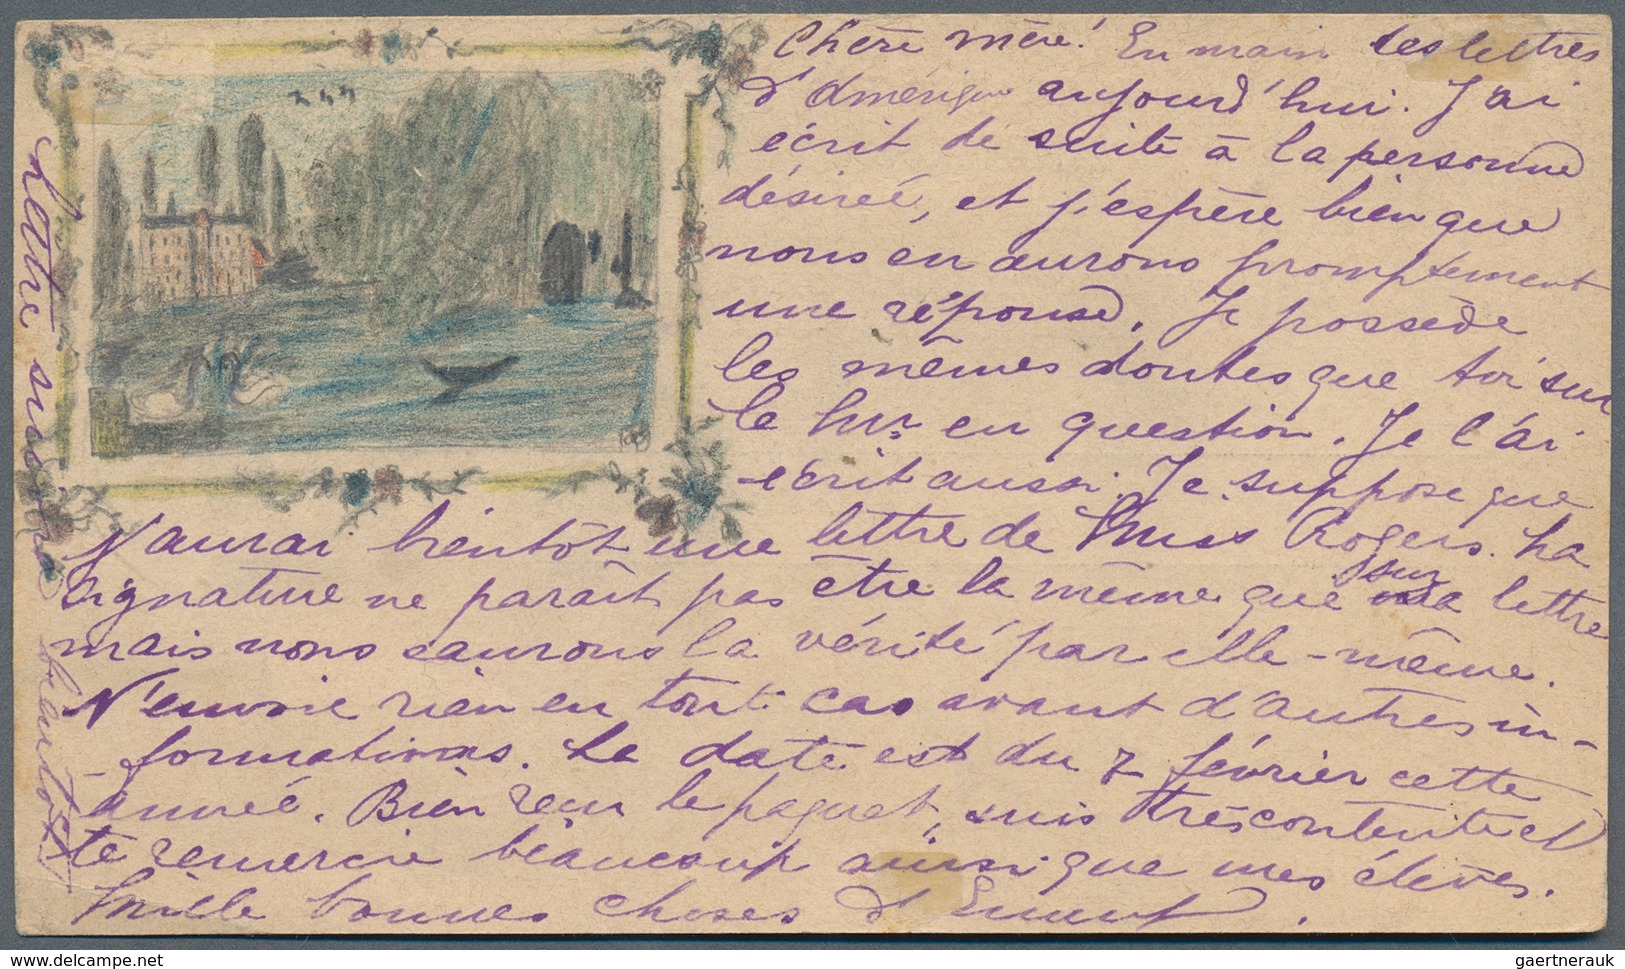 Chère mère! En main les lettres
d'Amérique aujourd'hui. J'ai
écrit de suite à la personne
désirée, et j'espère bien que
nous en aurons promptement
une réponse. Je possède
les mêmes doutes que toi sur
le Mr. en question. Je l'ai
écrit aussi. Je suppose que
j'aurai bientôt une lettre de Miss Rogers. La
signature ne paraît pas être la même que sur la lettre
mais nous saurons la vérité par elle-même.
N'envoie rien en tout cas avant d'autres in-
-formations. La date est du 7 février cette
année. Bien reçu le paquet, suis très contente et
te remercie beaucoup ainsi que mes élèves.
Mille bonnes choses d'
Lettre suivra bientôt
delcampe.net
gaertnerauk